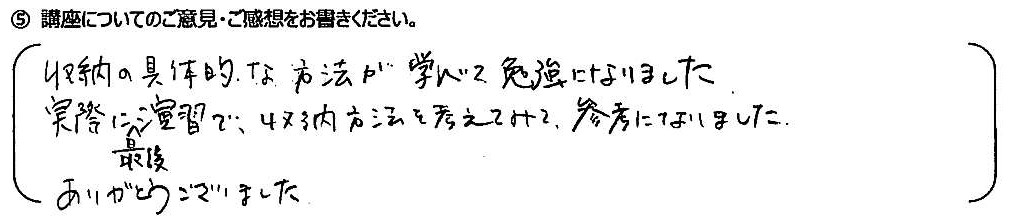 ⑤ 講座についてのご意見・ご感想をお書きください。
収納の具体的な方法が学べて勉強になりました
実際に最後演習で、収納方法を考えてみて、参考になりました。
ありがとうございました